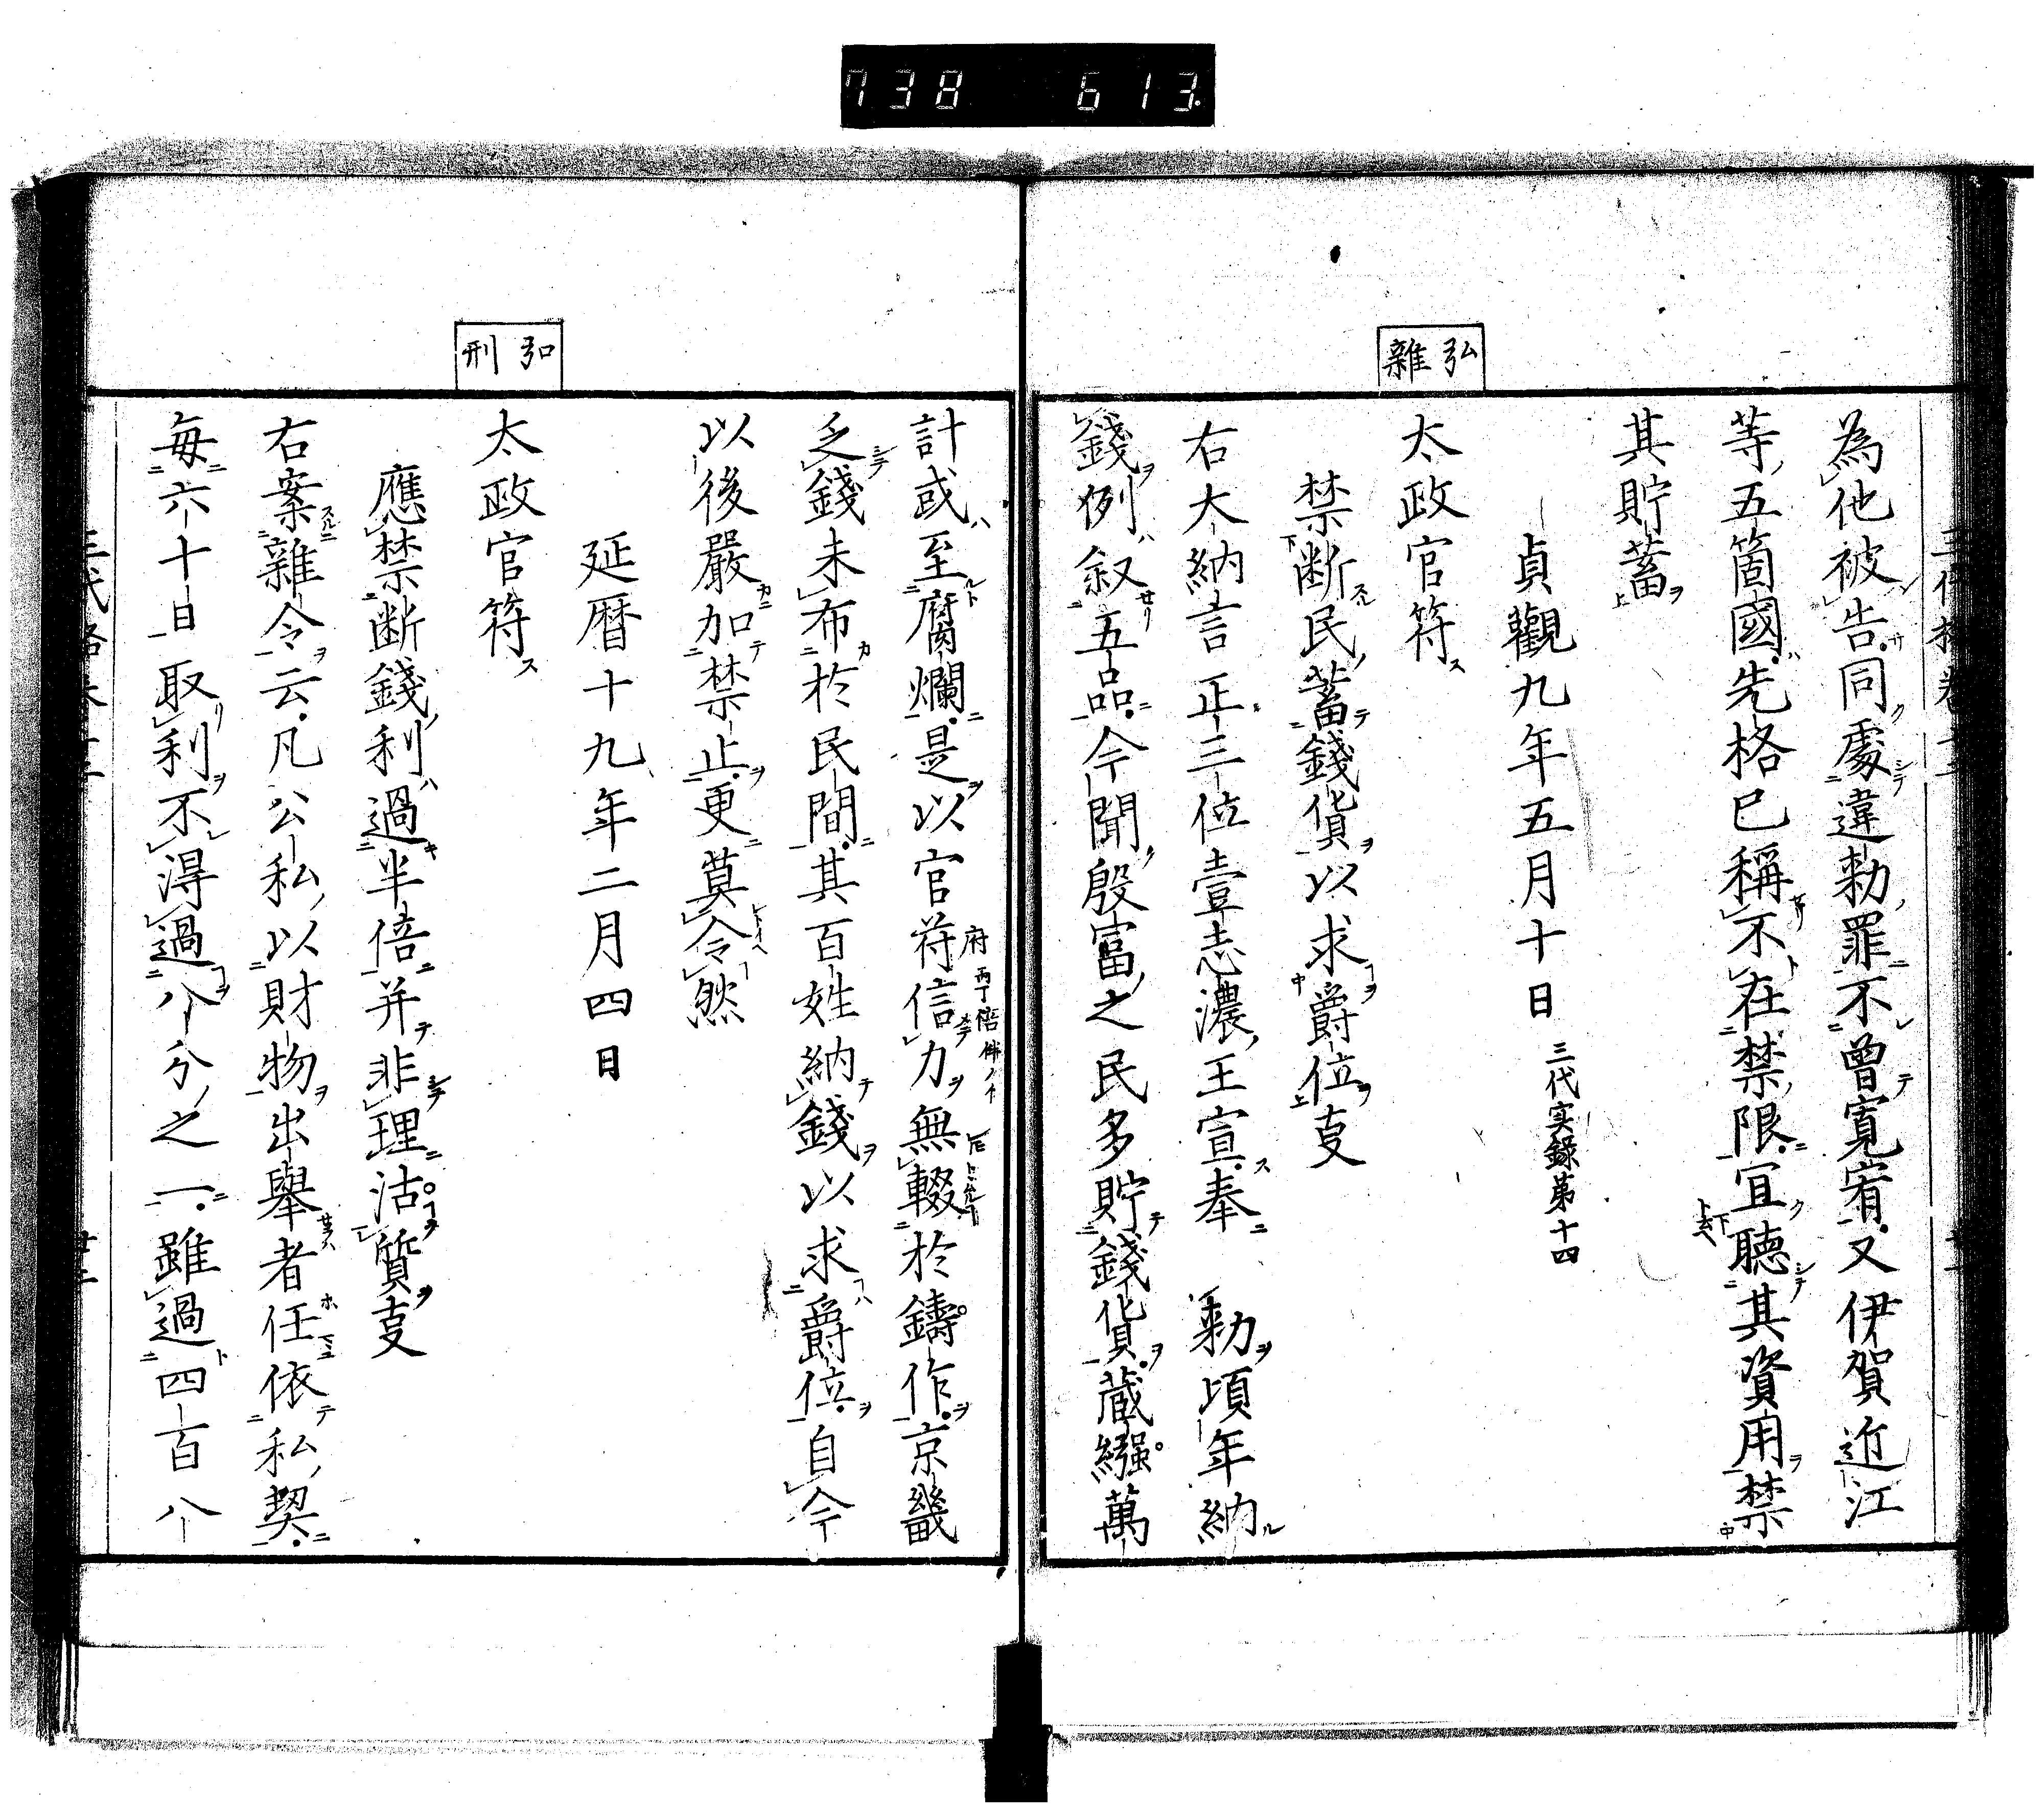 738 613
弘雜
為他被告同處違勅罪不曾寬宥又伊賀近江
等五箇國先格已稱不在禁限宜聽其資用禁
其貯蓄
貞觀九年五月十日 三代実録第十四
太政官符
禁断民蓄錢貨以求爵位㕝
右大納言正三位壹志濃王宣奉 勅頃年納
錢例叙五品今聞殷富之民多貯錢貨蔵繦萬
弘刑
計或至腐爛是以官符信力無輟於鑄作京畿
乏錢未布於民間其百姓納錢以求爵位自今
以後嚴加禁止更莫令然
延暦十九年二月四日
太政官符
應禁断錢利過半倍并非理沽質㕝
右案雜令云凡公私以財物出舉者任依私契
每六十日取利不得過八分之一雖過四百八